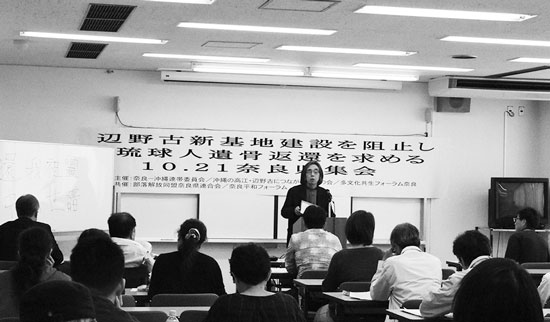 辺野古新基地建設を阻止し
琉球人遺骨返還を求める
10.21奈良県集会
主催：奈良－沖縄連帯委員会／沖縄の高江・辺野古につながる
会／多文化共生フォーラム奈良
共催：部落解放同盟奈良県連合会／奈良平和フォーラム